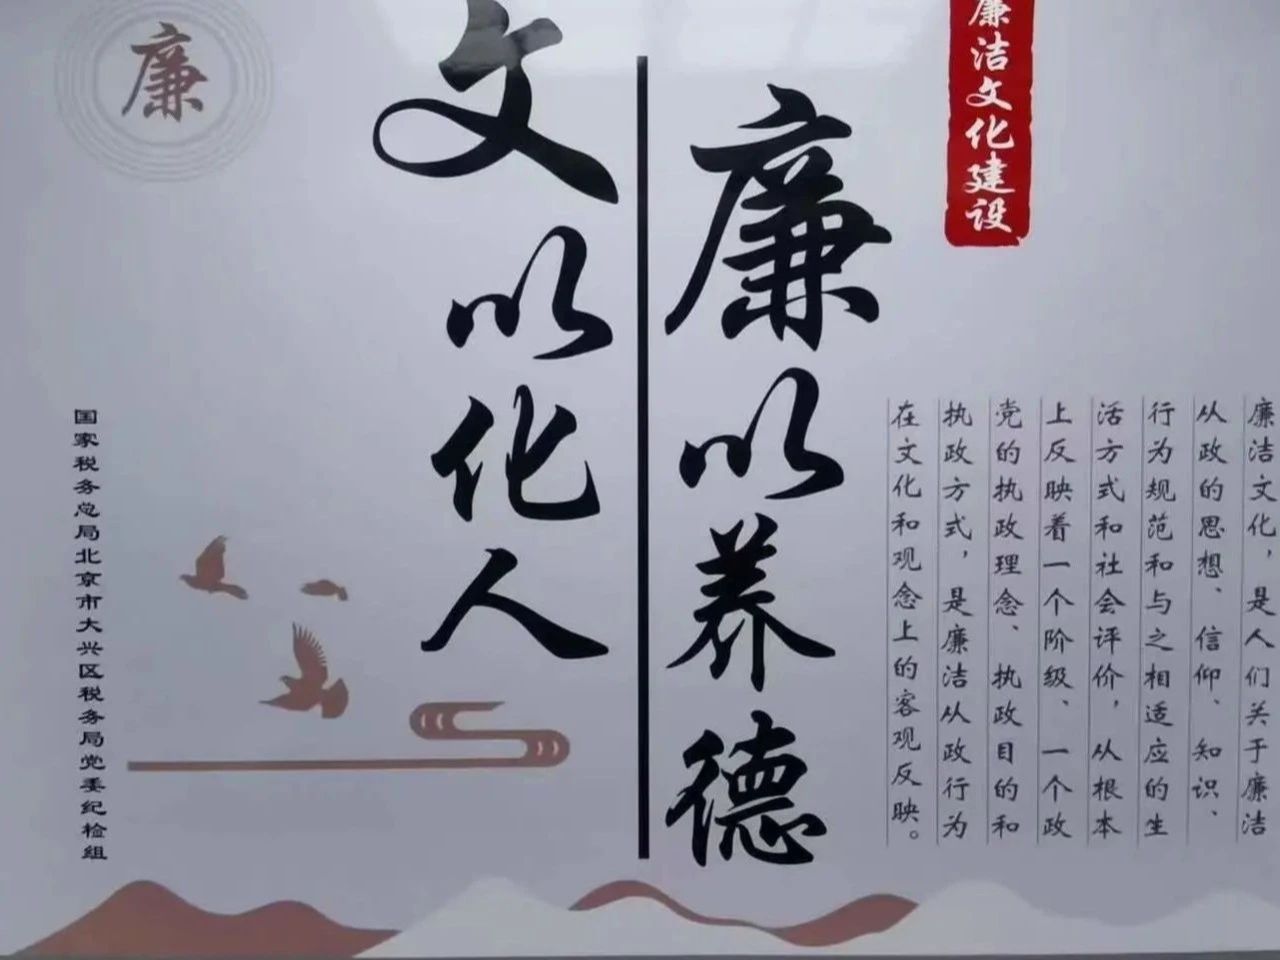 廉洁文化建设
廉洁文化，是人们关于廉洁
从政的思想、信仰、知识、
行为规范和与之相适应的生
活方式和社会评价，从根本
上反映着一个阶级、一个政
党的执政理念、执政目的和
执政方式，是廉洁从政行为
在文化和观念上的客观反映。
廉以养德
文以化人
廉
国家税务总局北京市大兴区税务局党委纪检组